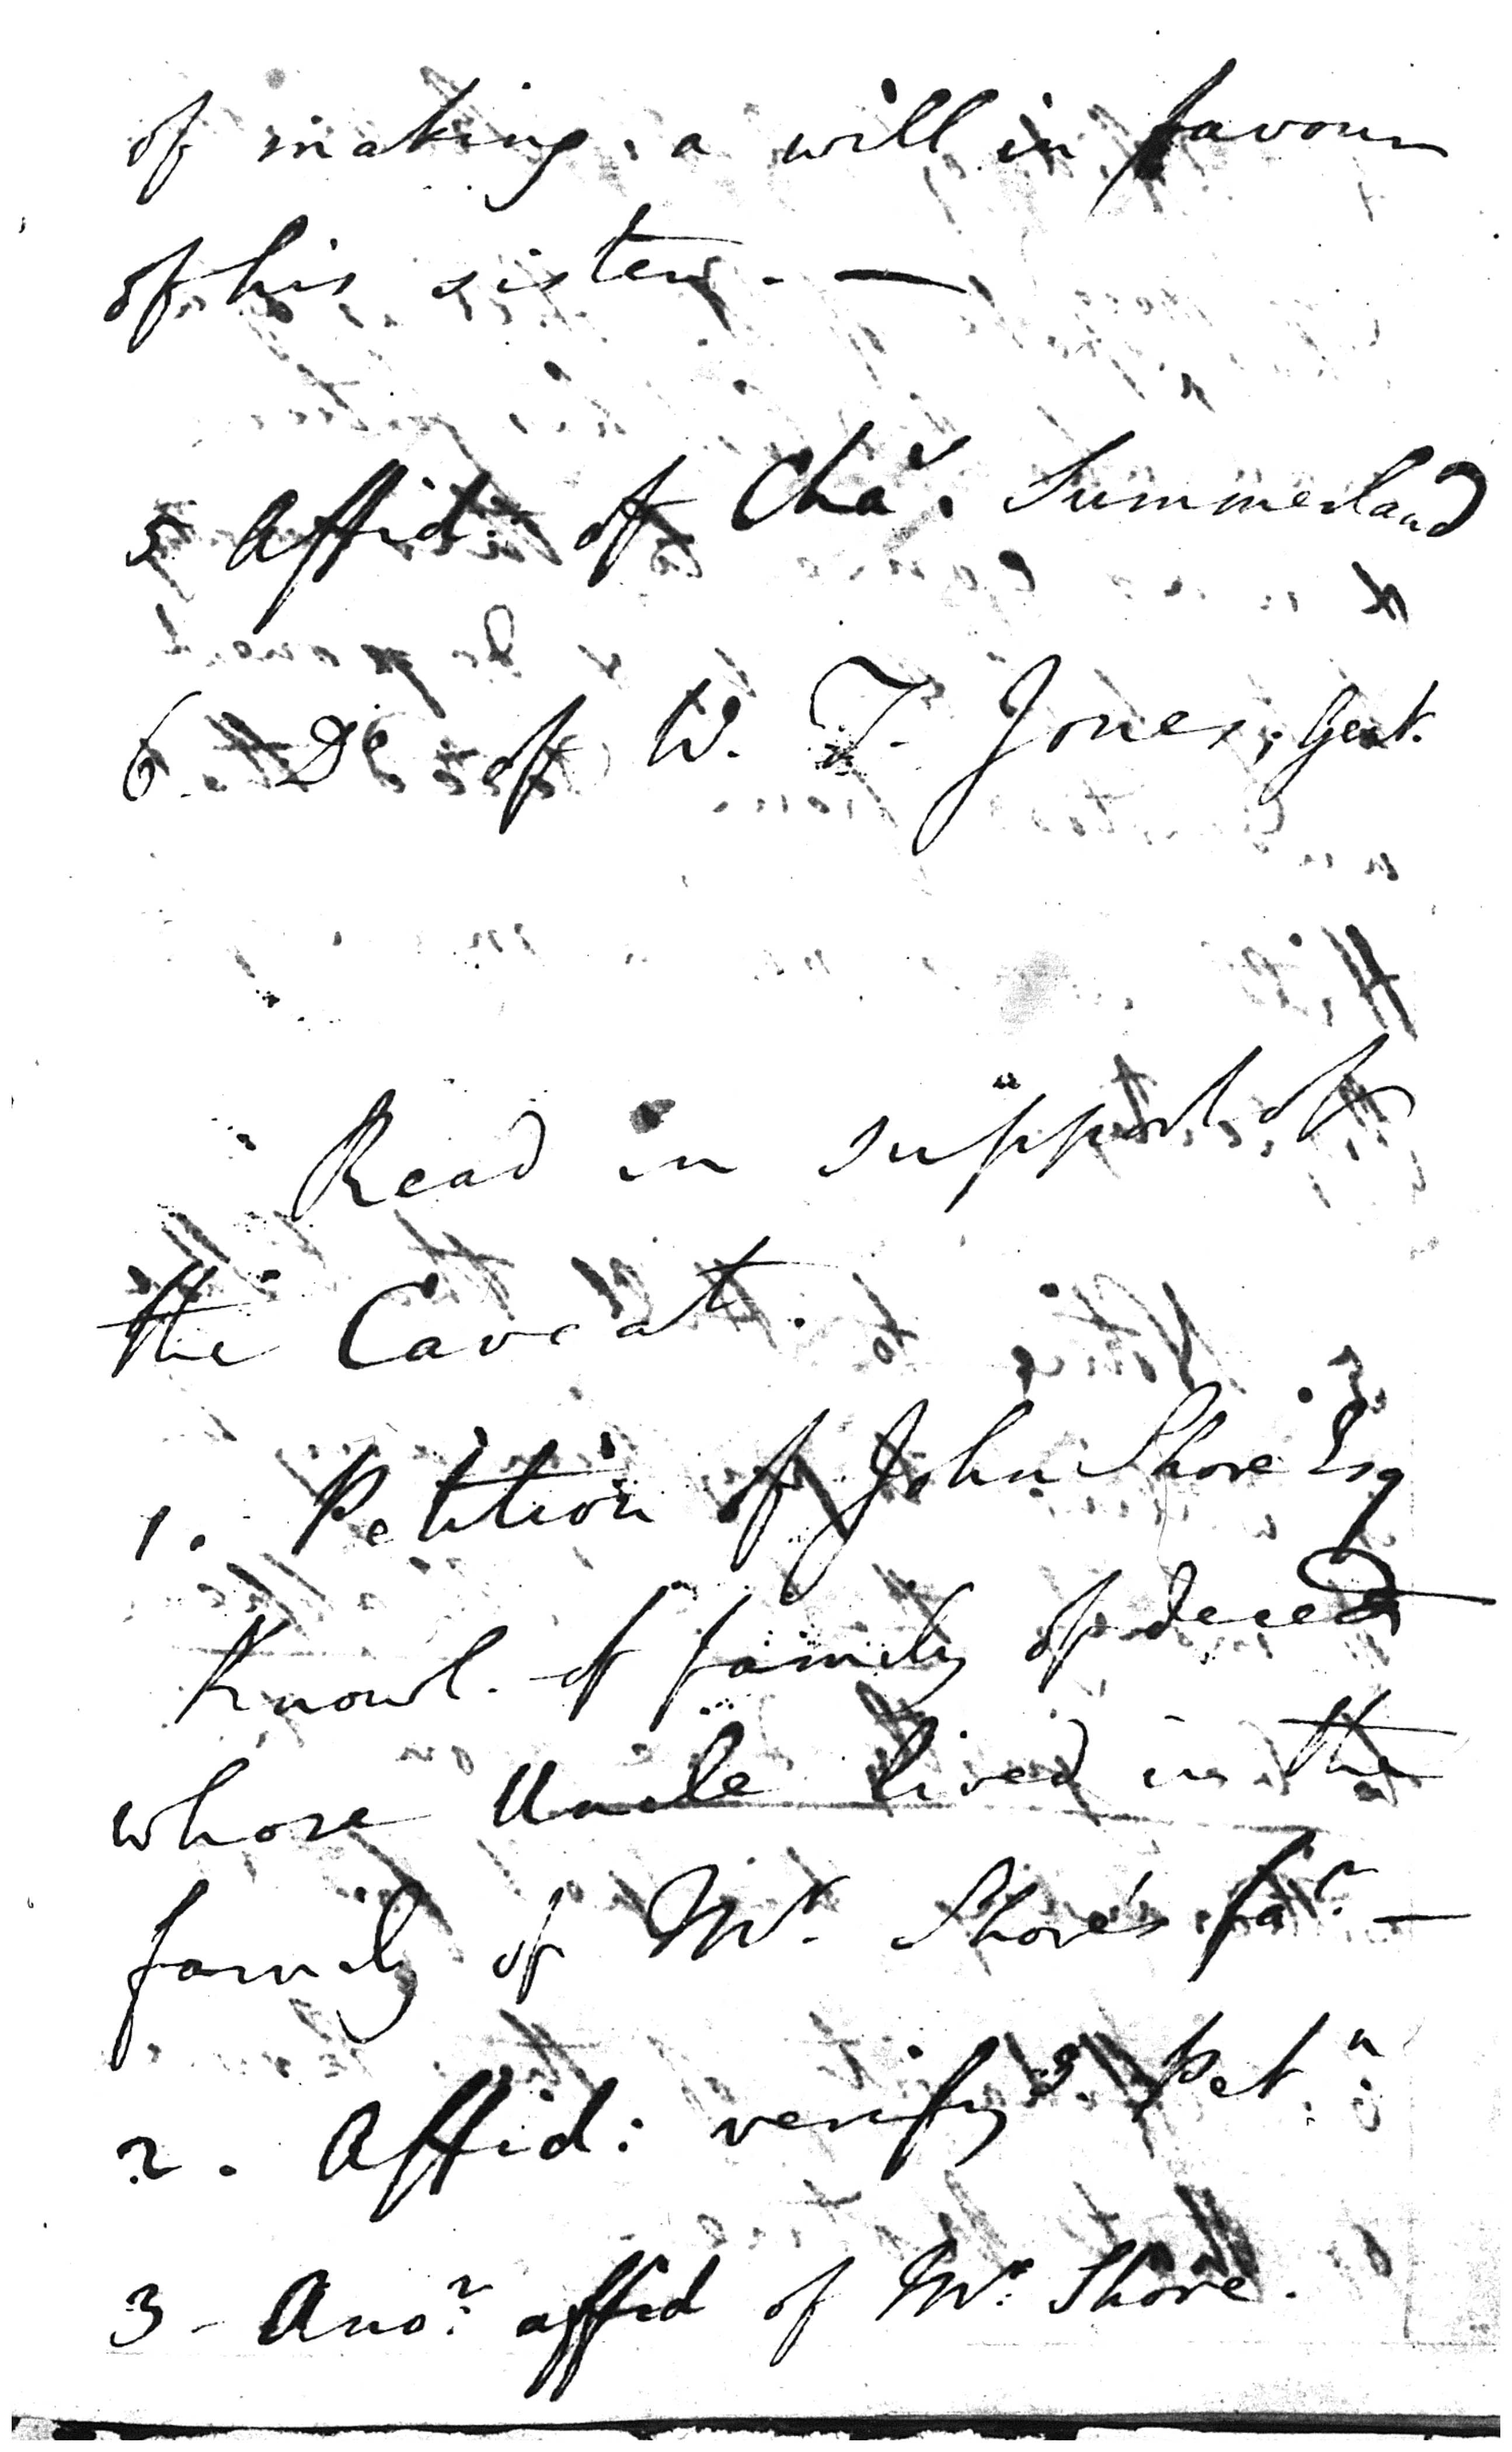 of making a will in favour
of his sister. —
5 Affid. of Chas. Summerland
6. Do of W. T. Jones, Gent.
Read in support of
the Caveat.
1. Petition of John Shore Esq
Knowl. of family of deced
whose Uncle lived in the
family of Mr. Shore's far. —
2. Affid: verifyg Petn.
3 - Anor. affid of Mr. Shore.